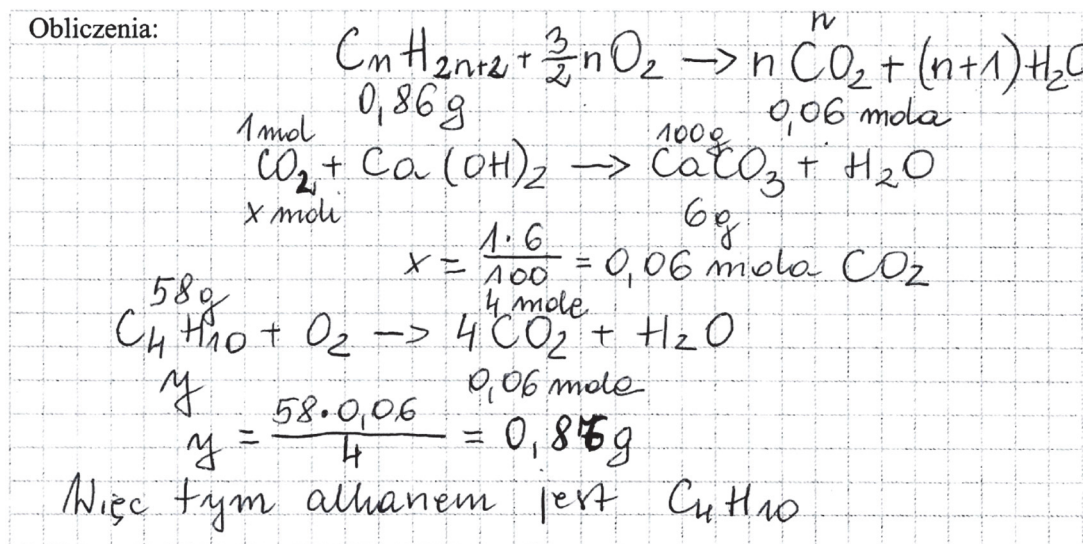 Obliczenia:
n
CnH2n+2 + 3/2 nO2 → n CO2 + (n+1)H2O
0,86g 0,06 mola
1mol 100g
CO2 + Ca(OH)2 → CaCO3 + H2O
x moli 6g
x = 1·6/100 = 0,06 mola CO2
58g 4 mole
C4H10 + O2 → 4CO2 + H2O
y 0,06 mola
y = 58·0,06/4 = 0,86g
Więc tym alkanem jest C4H10